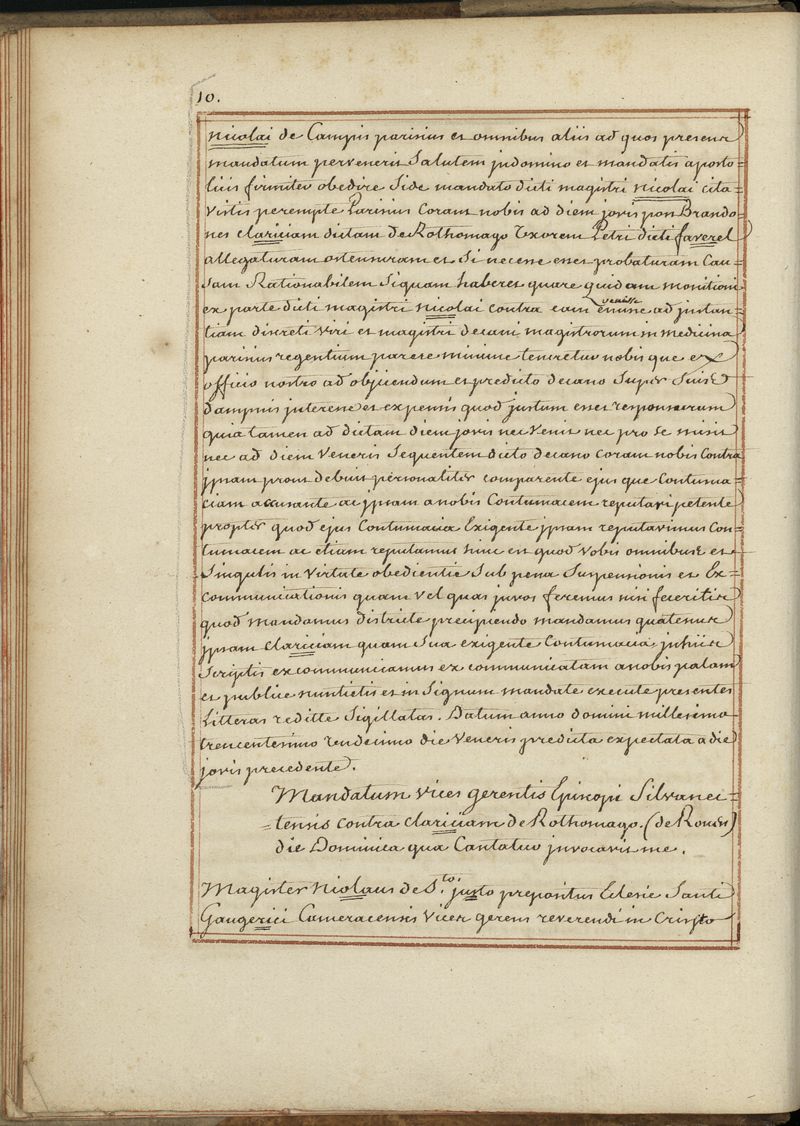 10.
Nicolai de Campis parisius et omnibus aliis ad quos presens
mandatum pervenerit Salutem jndomino et mandatis aposto
liiis firmiter obedire Side mandato dicti magistri nicolai cita=
Vistis perempte Parisius Coram nobis ad diem jovis post Brando=
nes clariciam dictam de Rothomago Uxorem Petri dicti faverel
allegaturam ostensuram et Si necesse esset probaturam Cau=
sam Rationabilem Siquam haberet quare quidam monitioni
ex parte dicti magistri nicolai contra eam venisse emisse ad justan=
tiam discreti viri et magistri decani magistrorum in medicina
parisius regentium parere minime teneretur nobis que ex
officio nostro ad objiiendum et predicto decano Super Suis
dampnis jnteresse et expensis quod justum esset responsuram
quia tamen ad dictam diem jovis nec Venit nec pro Se misit
nec ad diem Veneris Sequentem dicto decano Coram nobis Contra
jpsam prout debuit personaliter comparente ejus que Contuma=
ciam accusante ac jpsam anobis Contumacem reputari petente
propter quod ejus Contumacia Exigente jpsam reputavimus Con=
tumacem ac etiam reputamus hinc est quod Vobis omnibus et
Singulis in Virtute obedientie Sub pena Suspensionis et Ex=
communicationis quam vel quas juvos feremus nisi feceritis
quod mandamus districte precipiendo mandamus quatenus
jpsam clariciam quam Sua exigente Contumacia jnhiis
Scriptis excommunicamus ex communicatam anobis palam
et publice nuntietis et in Signum mandate execute presentes
Litteras reditte Sigillatas. Datum anno domini millesimo
trencentesimo Undecimo die Veneris predicta expectata adie
jovis precedente.
Mandatum vices gerentis Episcopi Silvanec=
=tensis contra clariciam de Rothomago. (de Rouen)
die Dominica qua Cantatur jnvocavit me.
Magister Nicolaus de S.to justo prepositus Eclesie Santi
Gaugerici Cameracensis Vices gerens reverendi in Cristo